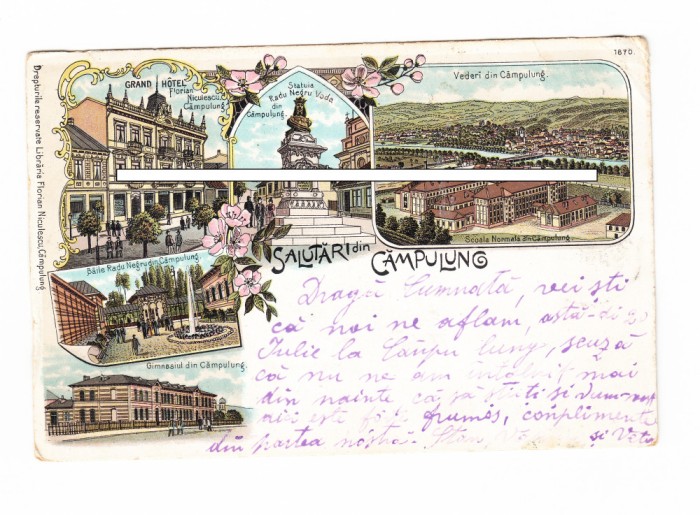 1670.
Drepturile reservate Librăria Florian Niculescu, Câmpulung
GRAND HÔTEL
Florian
Niculescu,
Câmpulung.
Statuia
Radu Negru Voda
din
Câmpulung.
Vederĭ din Câmpulung.
Scoala Normala din Câmpulung.
SALUTĂRĬ din CÂMPULUNG
Băile Radu Negru din Câmpulung.
Gimnasiul din Câmpulung.
Dragă Cumnată, vei ști
că noi ne aflam, astă-di 30
Iulie la Câmpu lung, scuză
că nu ne am mai
din nainte că să și Dum-
este frumos, complimente
din partea nóstră. și